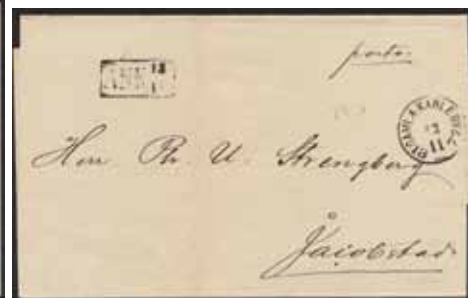 porto
ANK 13
11
GAMLA KARLEBY
13
11
Herr Ph. U. Strengberg
Jacobstad